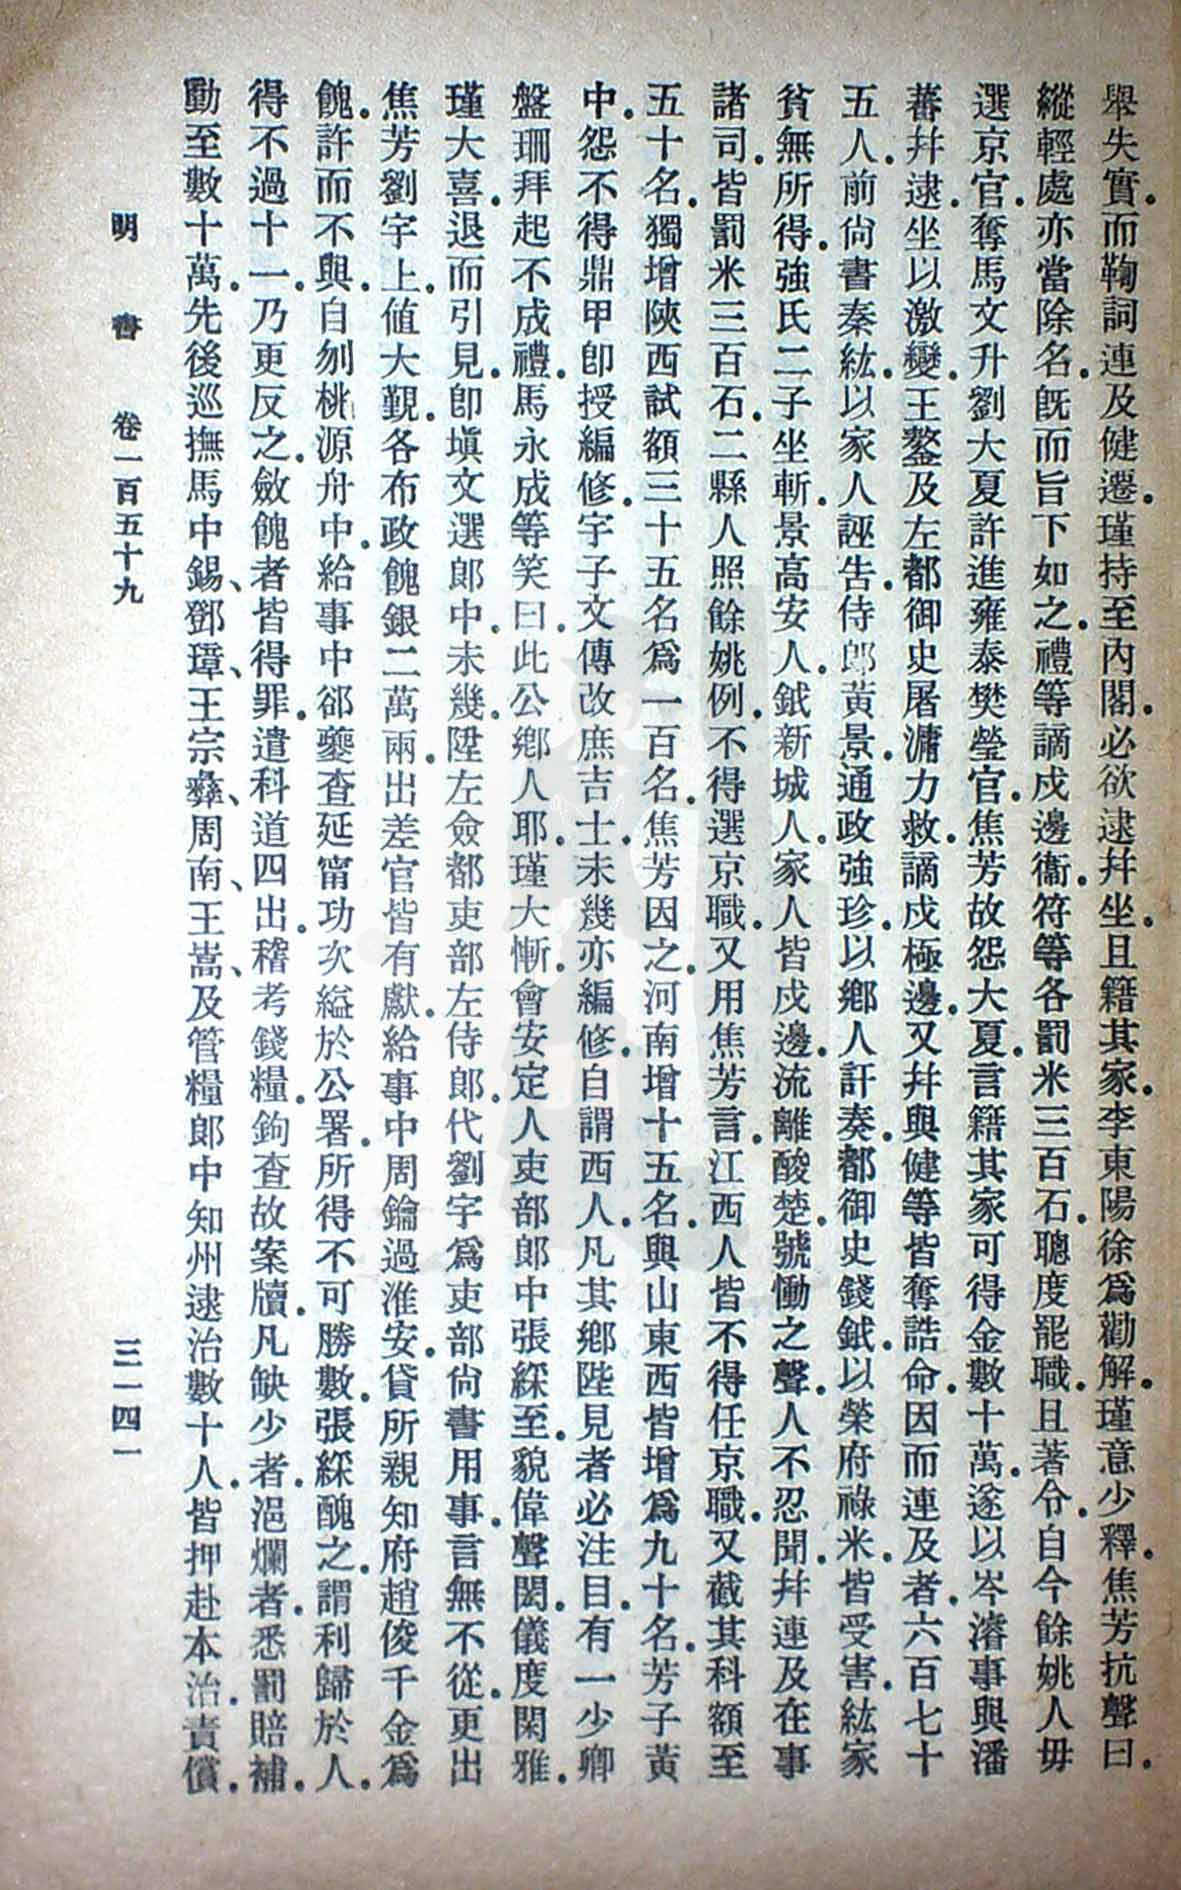 舉失實。而鞫詞連及健遷。瑾持至內閣。必欲逮幷坐。且籍其家。李東陽徐爲勸解。瑾意少釋。焦芳抗聲曰。
縱輕處亦當除名。旣而旨下如之。禮等謫戍邊衞。符等各罰米三百石。聰度罷職。且著令。自今餘姚人毋
選京官。奪馬文升劉大夏許進雍泰樊瑩官。焦芳故怨大夏。言籍其家可得金數十萬。遂以岑濬事與潘
蕃幷逮。坐以激變。王鏊及左都御史屠滽力救。謫戍極邊。又幷與健等皆奪誥命。因而連及者。六百七十
五人。前尙書秦紘。以家人誣告。侍郎黃景。通政強珍。以鄕人訐奏。都御史錢鉞。以榮府祿米。皆受害。紘家
貧無所得。強氏二子坐斬。景高安人。鉞新城人。家人皆戍邊。流離酸楚。號慟之聲。人不忍聞。幷連及在事
諸司。皆罰米三百石。二縣人照餘姚例。不得選京職。又用焦芳言。江西人皆不得任京職。又截其科額至
五十名。獨增陝西試額三十五名爲一百名。焦芳因之。河南增十五名。與山東西皆增爲九十名。芳子黃
中。怨不得鼎甲。卽授編修。宇子文傳改庶吉士。未幾亦編修。自謂西人。凡其鄕陛見者必注目。有一少卿
盤珊拜起不成禮。馬永成等笑曰。此公鄕人耶。瑾大慚。會安定人吏部郎中張綵至。貌偉聲閎。儀度閑雅。
瑾大喜。退而引見。卽塡文選郎中。未幾。陞左僉都吏部左侍郎。代劉宇爲吏部尙書用事。言無不從。更出
焦芳劉宇上。値大覲。各布政餽銀二萬兩。出差官皆有獻。給事中周鑰過淮安。貸所親知府趙俊千金爲
餽。許而不與。自刎桃源舟中。給事中郤夔查延甯功次縊於公署。所得不可勝數。張綵醜之。謂利歸於人。
得不過十一。乃更反之。斂餽者皆得罪。遣科道四出。稽考錢糧。鉤查故案牘。凡缺少者。浥爛者。悉罰賠補。
動至數十萬。先後巡撫馬中錫、鄧璋、王宗彝、周南、王嵩、及管糧郎中知州逮治數十人。皆押赴本治。責償。
明書　卷一百五十九　三一四一